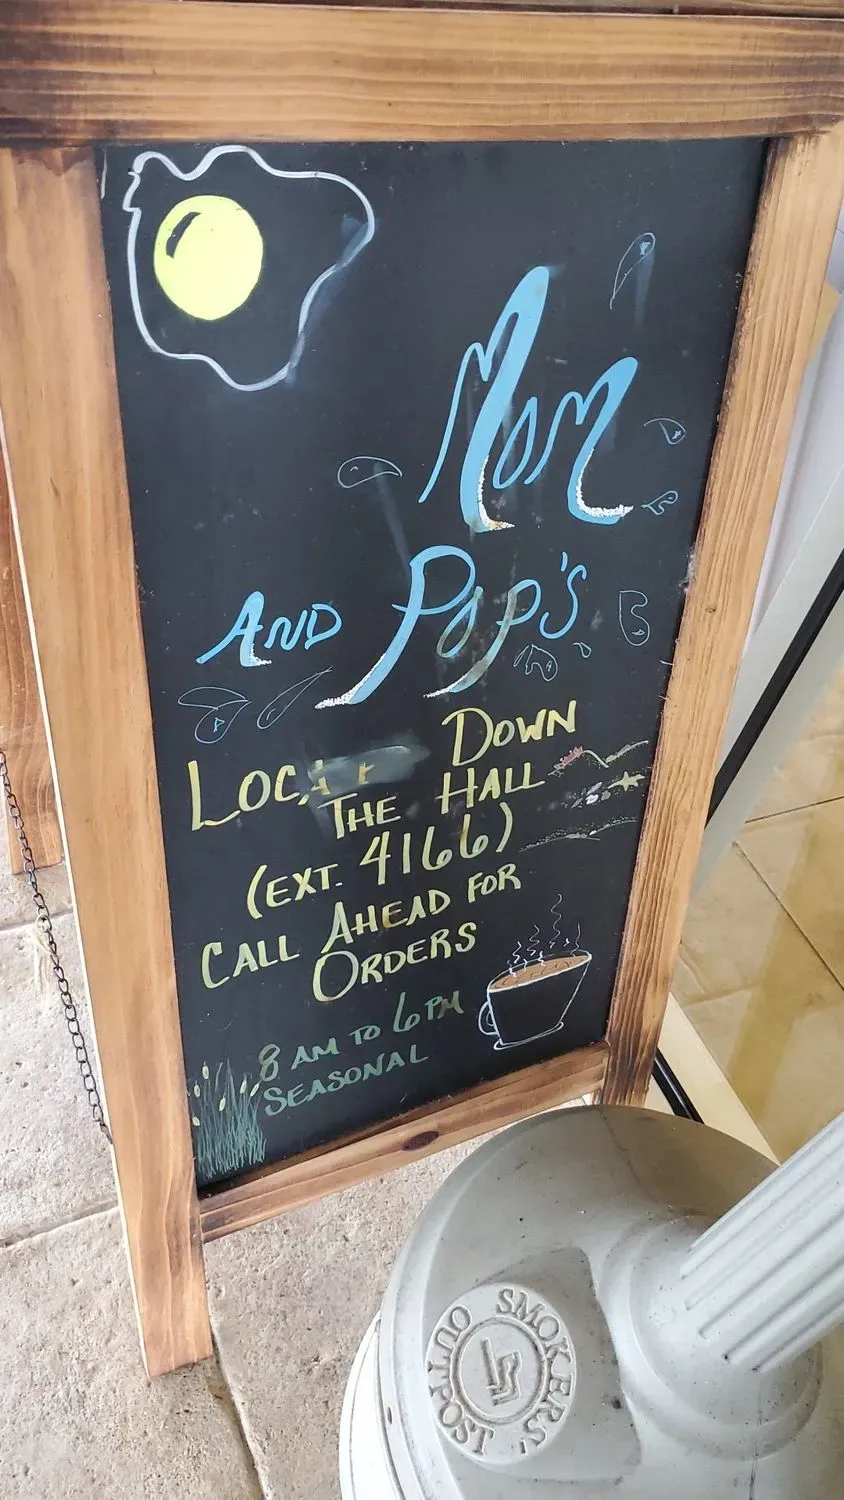 Mom
AND POP'S
DOWN
THE HALL
(EXT. 4166)
CALL AHEAD FOR
ORDERS
8 AM TO 6 PM
SEASONAL
SMOKERS'
OUTPOST